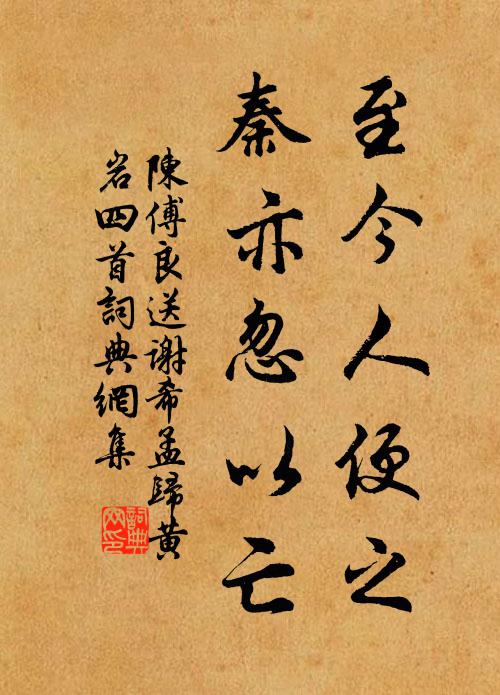 至今人便之
秦亦忽以亡
陳傅良送谢希孟歸黃
岩四首詞典網集
詞典
网印